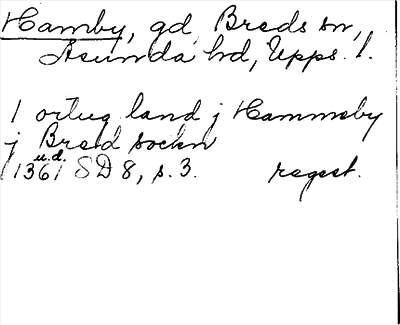 Hamby, gd, Breds sn,
Åsunda hd, Upps. l.
1 örtug land j Hammeby
j Bred sockn
u.d.
1361 SD 8, s. 3. regest.